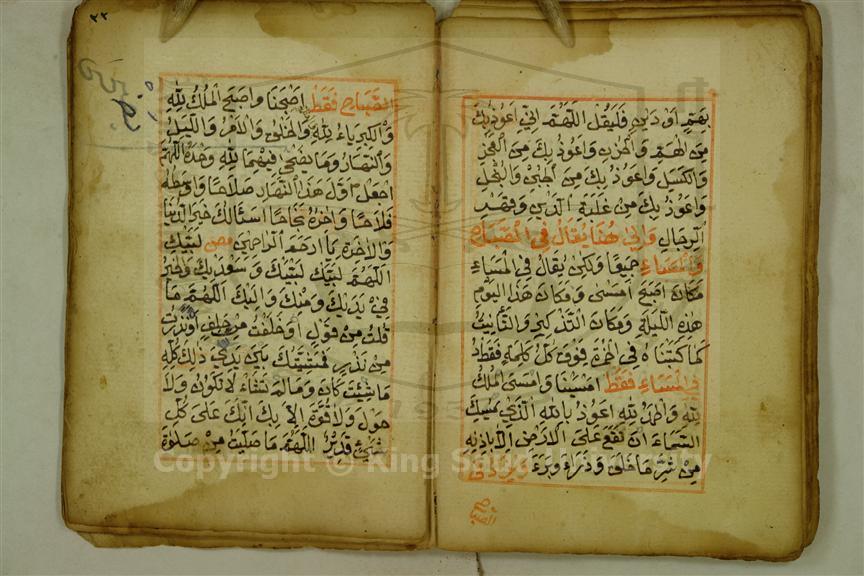 بهم او دين فليقل اللهم اني اعوذ بك
من الهم والحزن واعوذ بك من العجز
والكسل واعوذ بك من الجبن والبخل
واعوذ بك من غلبة الدين وقهر
الرجال والى هنا يقال في الصباح
والمساء جميعا ولكن يقال في المساء
مكان اصبح امسى ومكان هذا اليوم
هذه الليلة ومكان التذكير والتأنيث
كما كتبناه في احره فوق كل كلمة فقط د
في المساء فقط امسينا وامسى الملك
لله والحمد لله اعوذ بالله الذي يمسك
السماء ان تقع على الارض الا باذنه
من شر ما خلق وذراء وبرء ويزاد في
الصباح
٣٢
الصباح فقط اصبحنا واصبح الملك لله
والكبرياء لله والخلق والامر والليل
والنهار وما يضحى فيهما لله وحده اللهم
اجعل اول هذا النهار صلاحا واوسطه
فلاحا واخره نجاحا اسئالك خير الدنيا
والاخرة يا ارحم الراحمين مص لبيك
اللهم لبيك لبيك وسعديك والخير
في يديك ومنك واليك اللهم ما
قلت من قول او حلفت من حلف او نذرت
من نذر فمشيتك بين يدي ذلك كله
ما شئت كان وما لم تشاء لا تكون ولا
حول ولا قوة الا بك انك على كل
شيئ قدير اللهم ما صليت من صلوة
Copyright © King Saud University